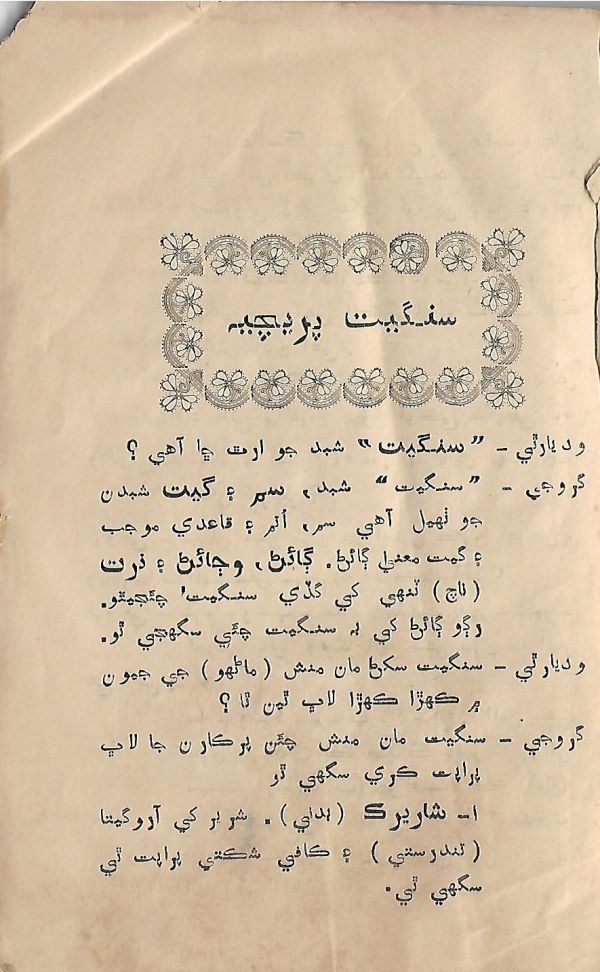 سنگيت پريچيہ
وديارٿي – ”سنگيت“ شبد جو ارٿ ڇا آهي ؟
گروجي – ”سنگيت“ شبد، سم ۽ گيت شبدن
جو ٺهيل آهي سم، اُتم ۽ قاعدي موجب
۽ گيت معنيٰ ڳائڻ. ڳائڻ، وڄائڻ ۽ نرت
(ناچ) ٽنهي کي گڏي سنگيت' چئجيٿو.
رڳو ڳائڻ کي بہ سنگيت چئي سگهجي ٿو.
وديارٿي – سنگيت سکڻ مان منش (ماڻهو) جي جيون
۾ ڪهڙا ڪهڙا لاڀ ٿين ٿا ؟
گروجي – سنگيت مان منش چئن پرڪارن جا لاڀ
پراپت ڪري سگهي ٿو
۱– شاريرڪ (بدني). شرير کي آروگيتا
(تندرستي) ۽ ڪافي شڪتي پراپت ٿي
سگهي ٿي.